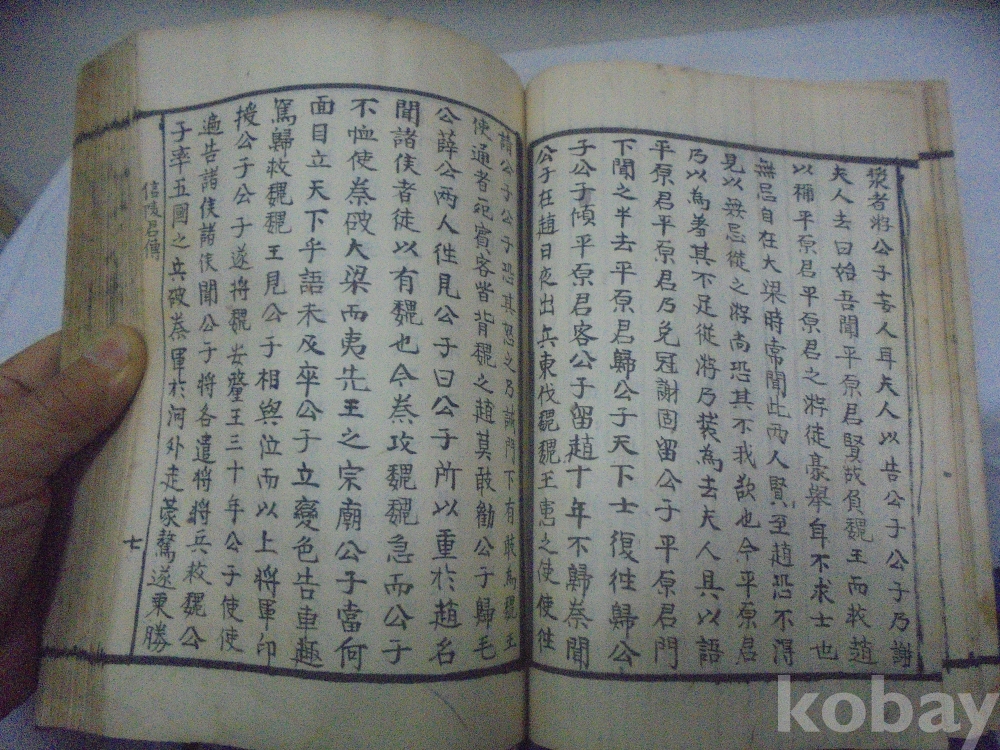 漿者將公子妄人耳夫人以告公子公子乃謝
夫人去曰始吾聞平原君賢故負魏王而救趙
以稱平原君平原君之游徒豪舉耳不求士也
無忌自在大梁時常聞此兩人賢至趙恐不得
見以無忌從之游尚恐其不我欲也今平原君
乃以為羞其不足從游乃裝為去夫人具以語
平原君平原君乃免冠謝固留公子平原君門
下聞之半去平原君歸公子天下士復徃歸公
子公子傾平原君客公子留趙十年不歸秦聞
公子在趙日夜出兵東伐魏魏王患之使使徃
請公子公子恐其怒之乃誡門下有敢為魏王
使通者死賓客皆背魏之趙莫敢勸公子歸毛
公薛公兩人徃見公子曰公子所以重於趙名
聞諸侯者徒以有魏也今秦攻魏魏急而公子
不恤使秦破大梁而夷先王之宗廟公子當何
面目立天下乎語未及卒公子立變色告車趣
駕歸救魏魏王見公子相與泣而以上將軍印
授公子公子遂將魏安釐王三十年公子使使
遍告諸侯諸侯聞公子將各遣將將兵救魏公
子率五國之兵破秦軍於河外走蒙驁遂乘勝
信陵君傳
七
kobay